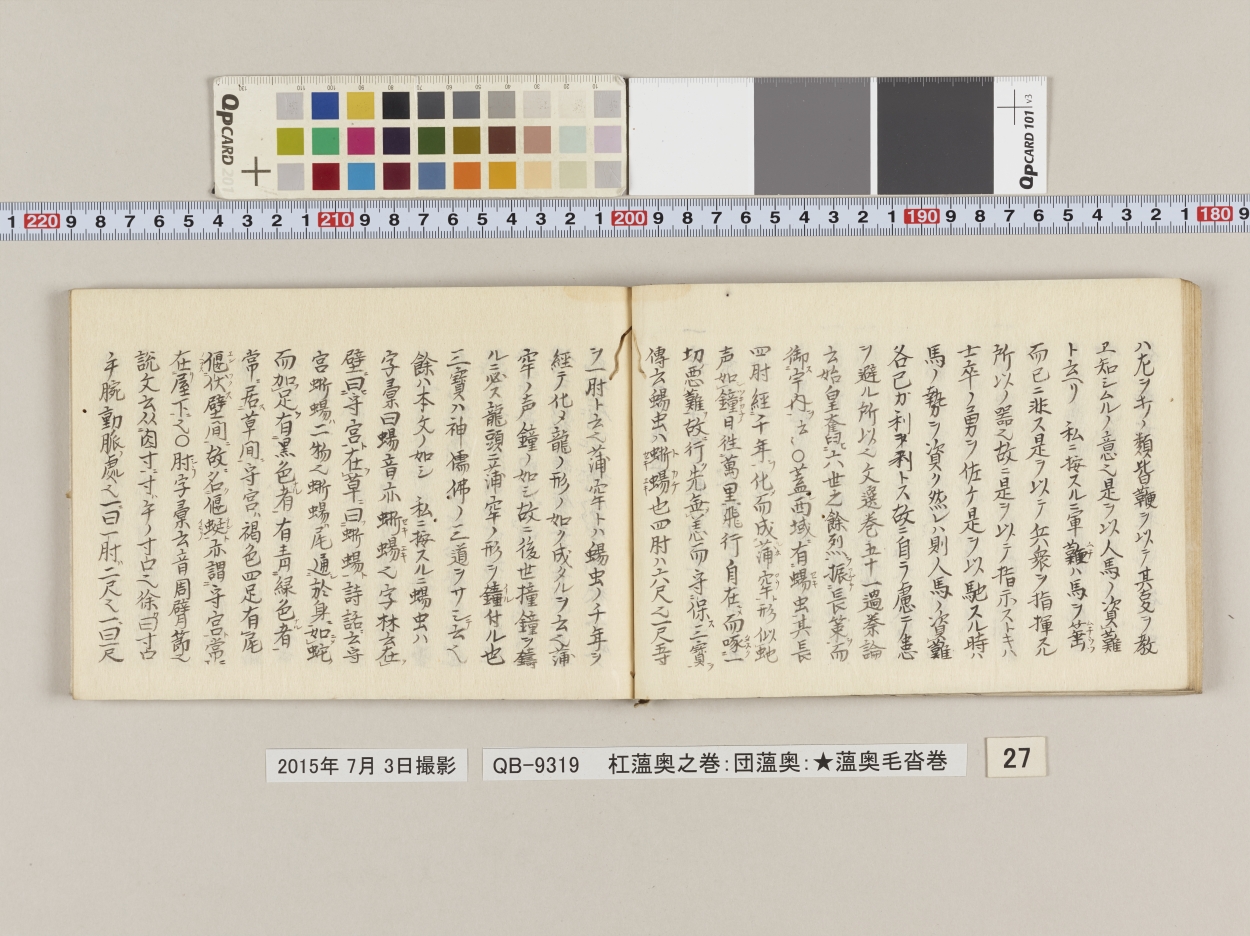 ハ尤ヲキノ類皆鞭ヲ以テ其夏ヲ教
ヱ知シムルノ意之是ヲ以人馬ノ資難
ト云リ 私ニ按スルニ軍難ハ馬ヲ
而已ニ非ス是ヲ以テ兵衆ヲ指揮スル
所以ノ器之故ニ是ヲ以テ指示ストキハ
士卒ノ勇ヲ佐ケ是ヲ以馳スル時ハ
馬ノ勢ヲ資ク然レハ則人馬ノ資難
各已カ利ヲ利トス故ニ自ラ慮テ患
ヲ避ル所以之文選巻五十一過秦論
云始皇奮六世之餘烈振長策而
御宇内云々〇蓋西域有蜴虫其長
四肘經千年化而成蒲牢形似蛇
声如鐘日徃萬里飛行自在而啄一
切悪難故行先無恙而守保三寶
傳云蜴虫ハ蜥蜴也四肘ハ六尺之一尺五寸
ヲ一肘ト云之蒲牢トハ蜴虫ノ千年ヲ
經テ化〆龍ノ形ノ如ク成タルヲ云之蒲
牢ノ声鐘ノ如シ故ニ後世撞鐘ヲ鑄
ルニ必ス龍頭ニ蒲牢ノ形ヲ鐘付ル也
三寶ハ神儒佛ノ三道ヲサシテ云之
餘ハ本文ノ如シ 私ニ按スルニ蜴虫ハ
字彙曰蜴音亦蜥蜴之字林云在
壁曰守宮在草曰蜥蜴詩詁云守
宮蜥蜴二物之蜥蜴尾通於身如蛇
而加足有黒色者有青緑色者
常居草間守宮褐色四足有尾
偃伏壁間故名偃蜓亦謂守宮常
在屋下之〇肘字彙云音周臂節之
説文云从肉寸寸手ノ寸口之徐曰寸口
手腕動脈處之一曰一肘二尺之一曰一尺
2015年 7月 3日撮影
QB-9319 杠薀奥之巻:団薀奥:★薀奥毛沓巻
27
QPCARD 201
QPCARD 101 v3
1 220 9 8 7 6 5 4 3 2 1 210 9 8 7 6 5 4 3 2 1 200 9 8 7 6 5 4 3 2 1 190 9 8 7 6 5 4 3 2 1 180 9